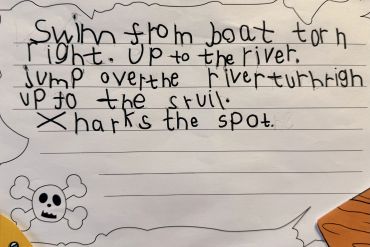 Swim from boat torn
right. Up to the river.
jump overthe riverturnrigh
up to the sruil.
X harks the spot.